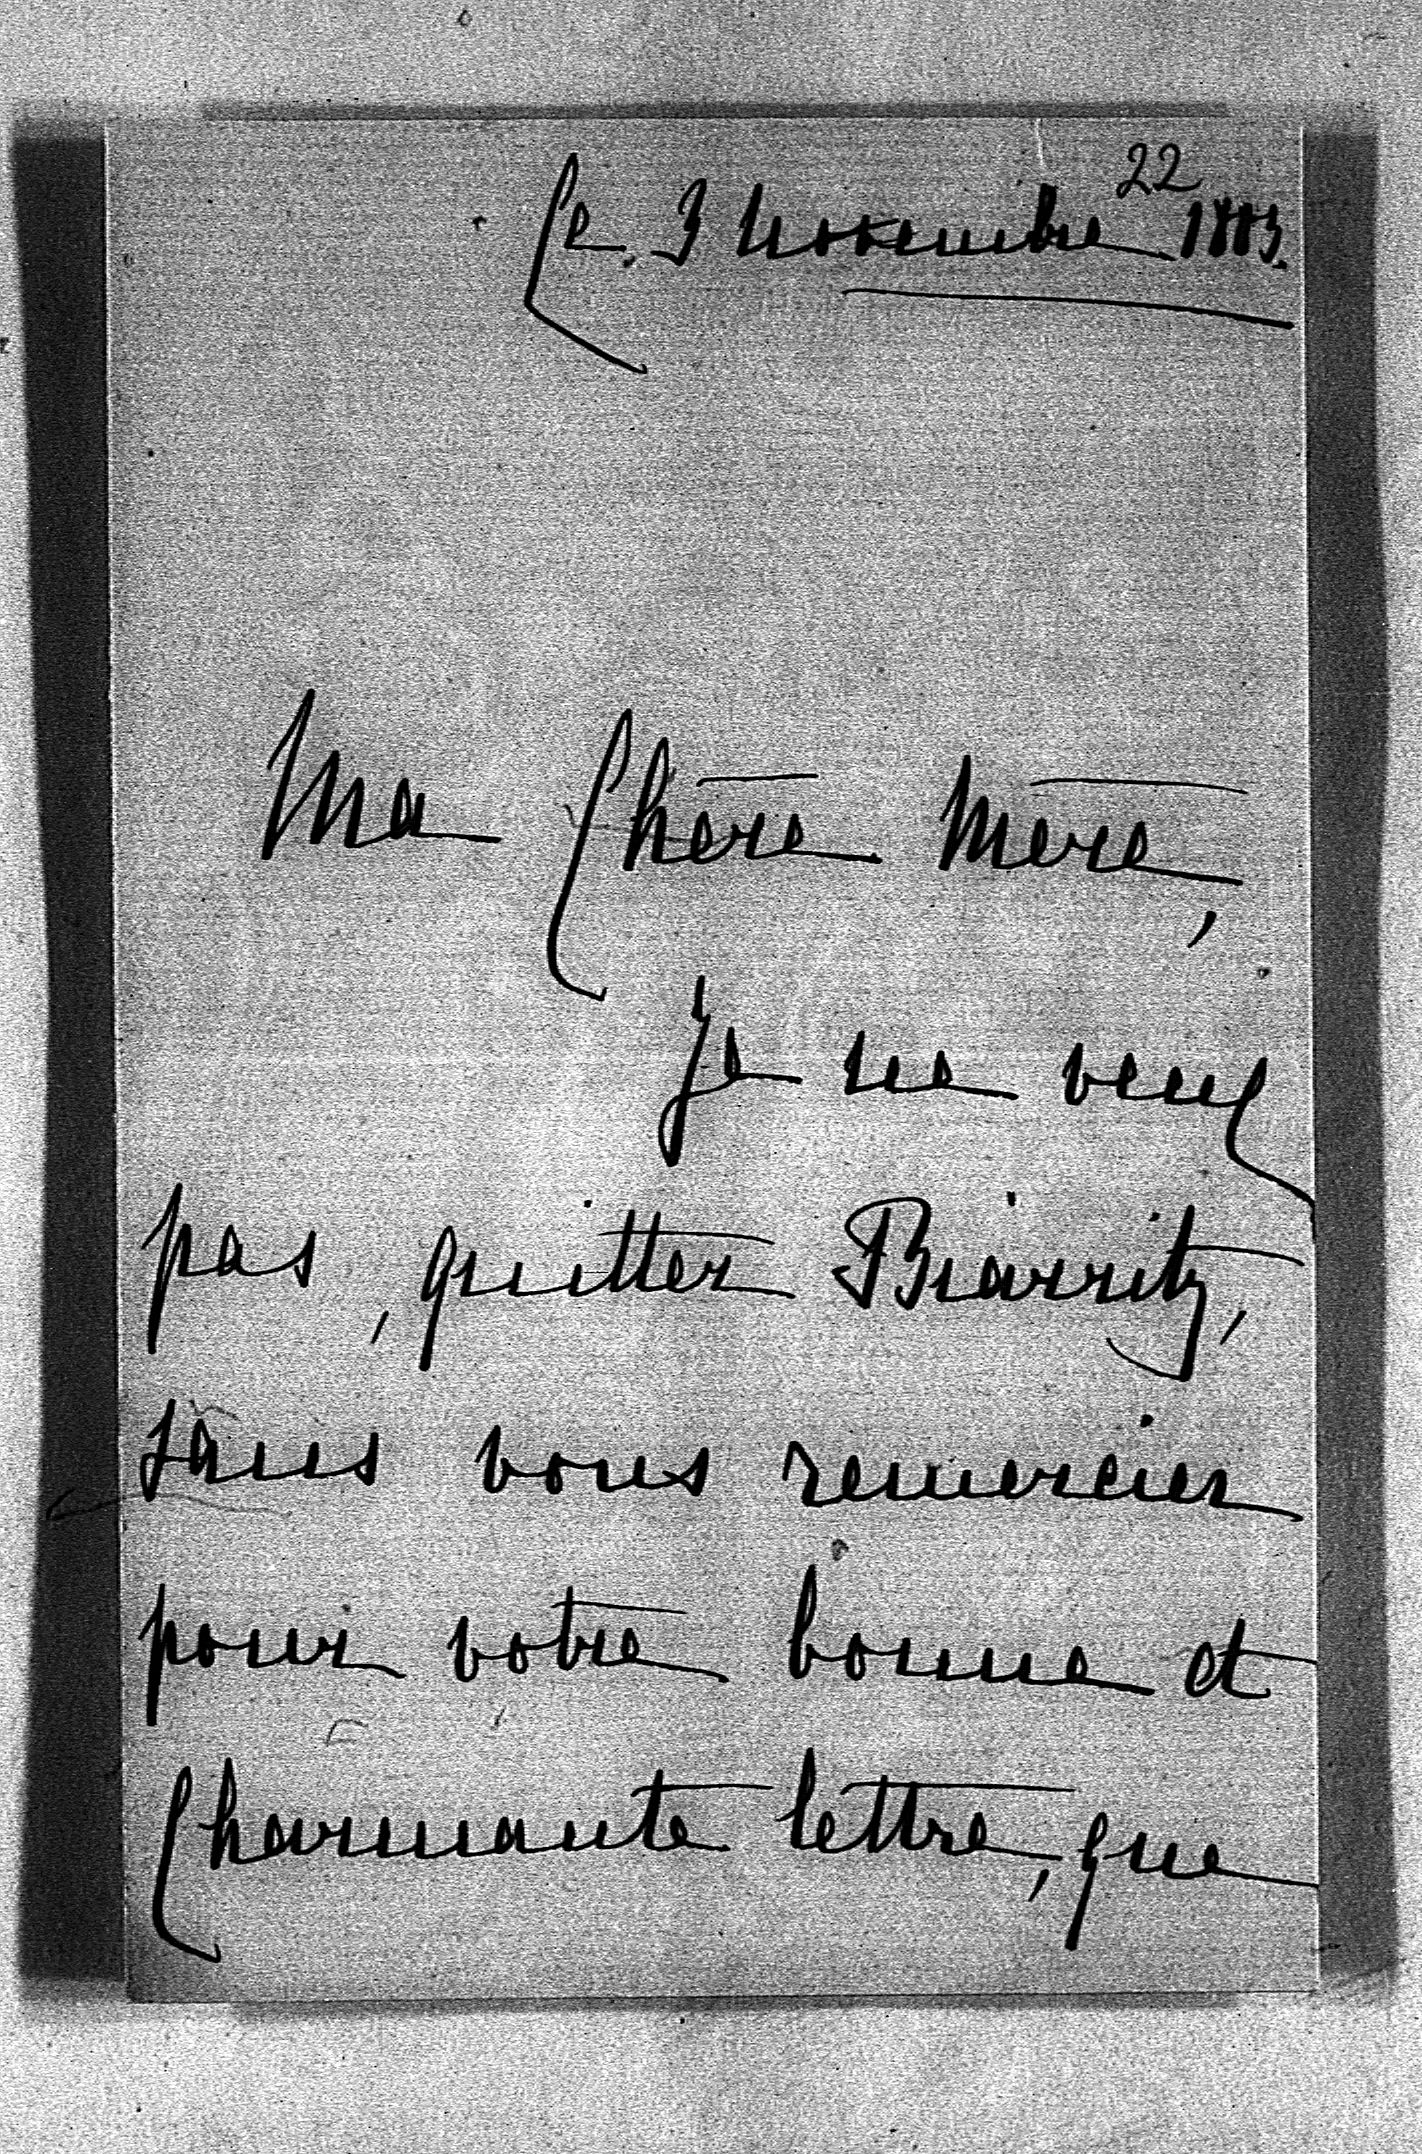 22
Ce. 3 Novembre 1883.
Ma Chère Mère,
Je ne veux
pas, quitter Biarritz,
sans vous remercier
pour votre bonne et
Charmante lettre, que